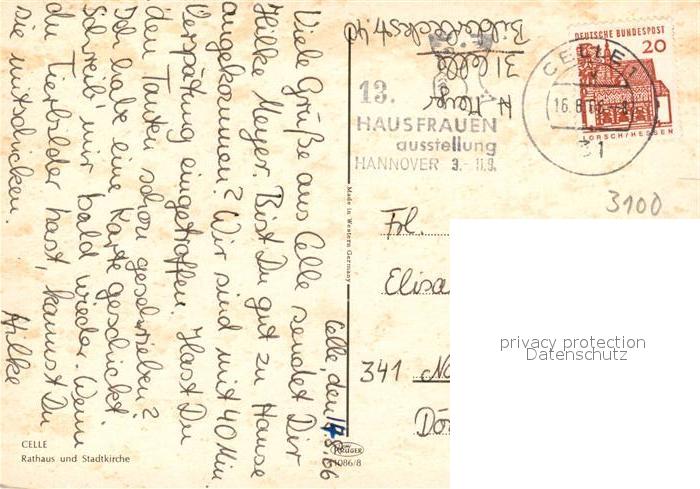 Celle, den 17.8.66
Viele Grüße aus Celle sendet Dir
Heilke Meyer. Bist Du gut zu Hause
angekommen? Wir sind mit 40 Min
Verspätung eingetroffen. Hast Du
den Tanten schon geschrieben?
Ich habe eine Karte geschickt.
Schreib' mir bald wieder. Wenn
du Tierbilder hast, kannst Du
sie mitschicken.
Hilke
H. Meyer
31 Celle
CELLE
Rathaus und Stadtkirche
Made in Western Germany
KRÜGER
1086/8
13.
HAUSFRAUEN
ausstellung
HANNOVER 3.-11.9.
DEUTSCHE BUNDESPOST
20
LORSCH/HESSEN
CELLE 1
16.8.
31
3100
Frl.
Elisa
341 No
Dör
privacy protection
Datenschutz